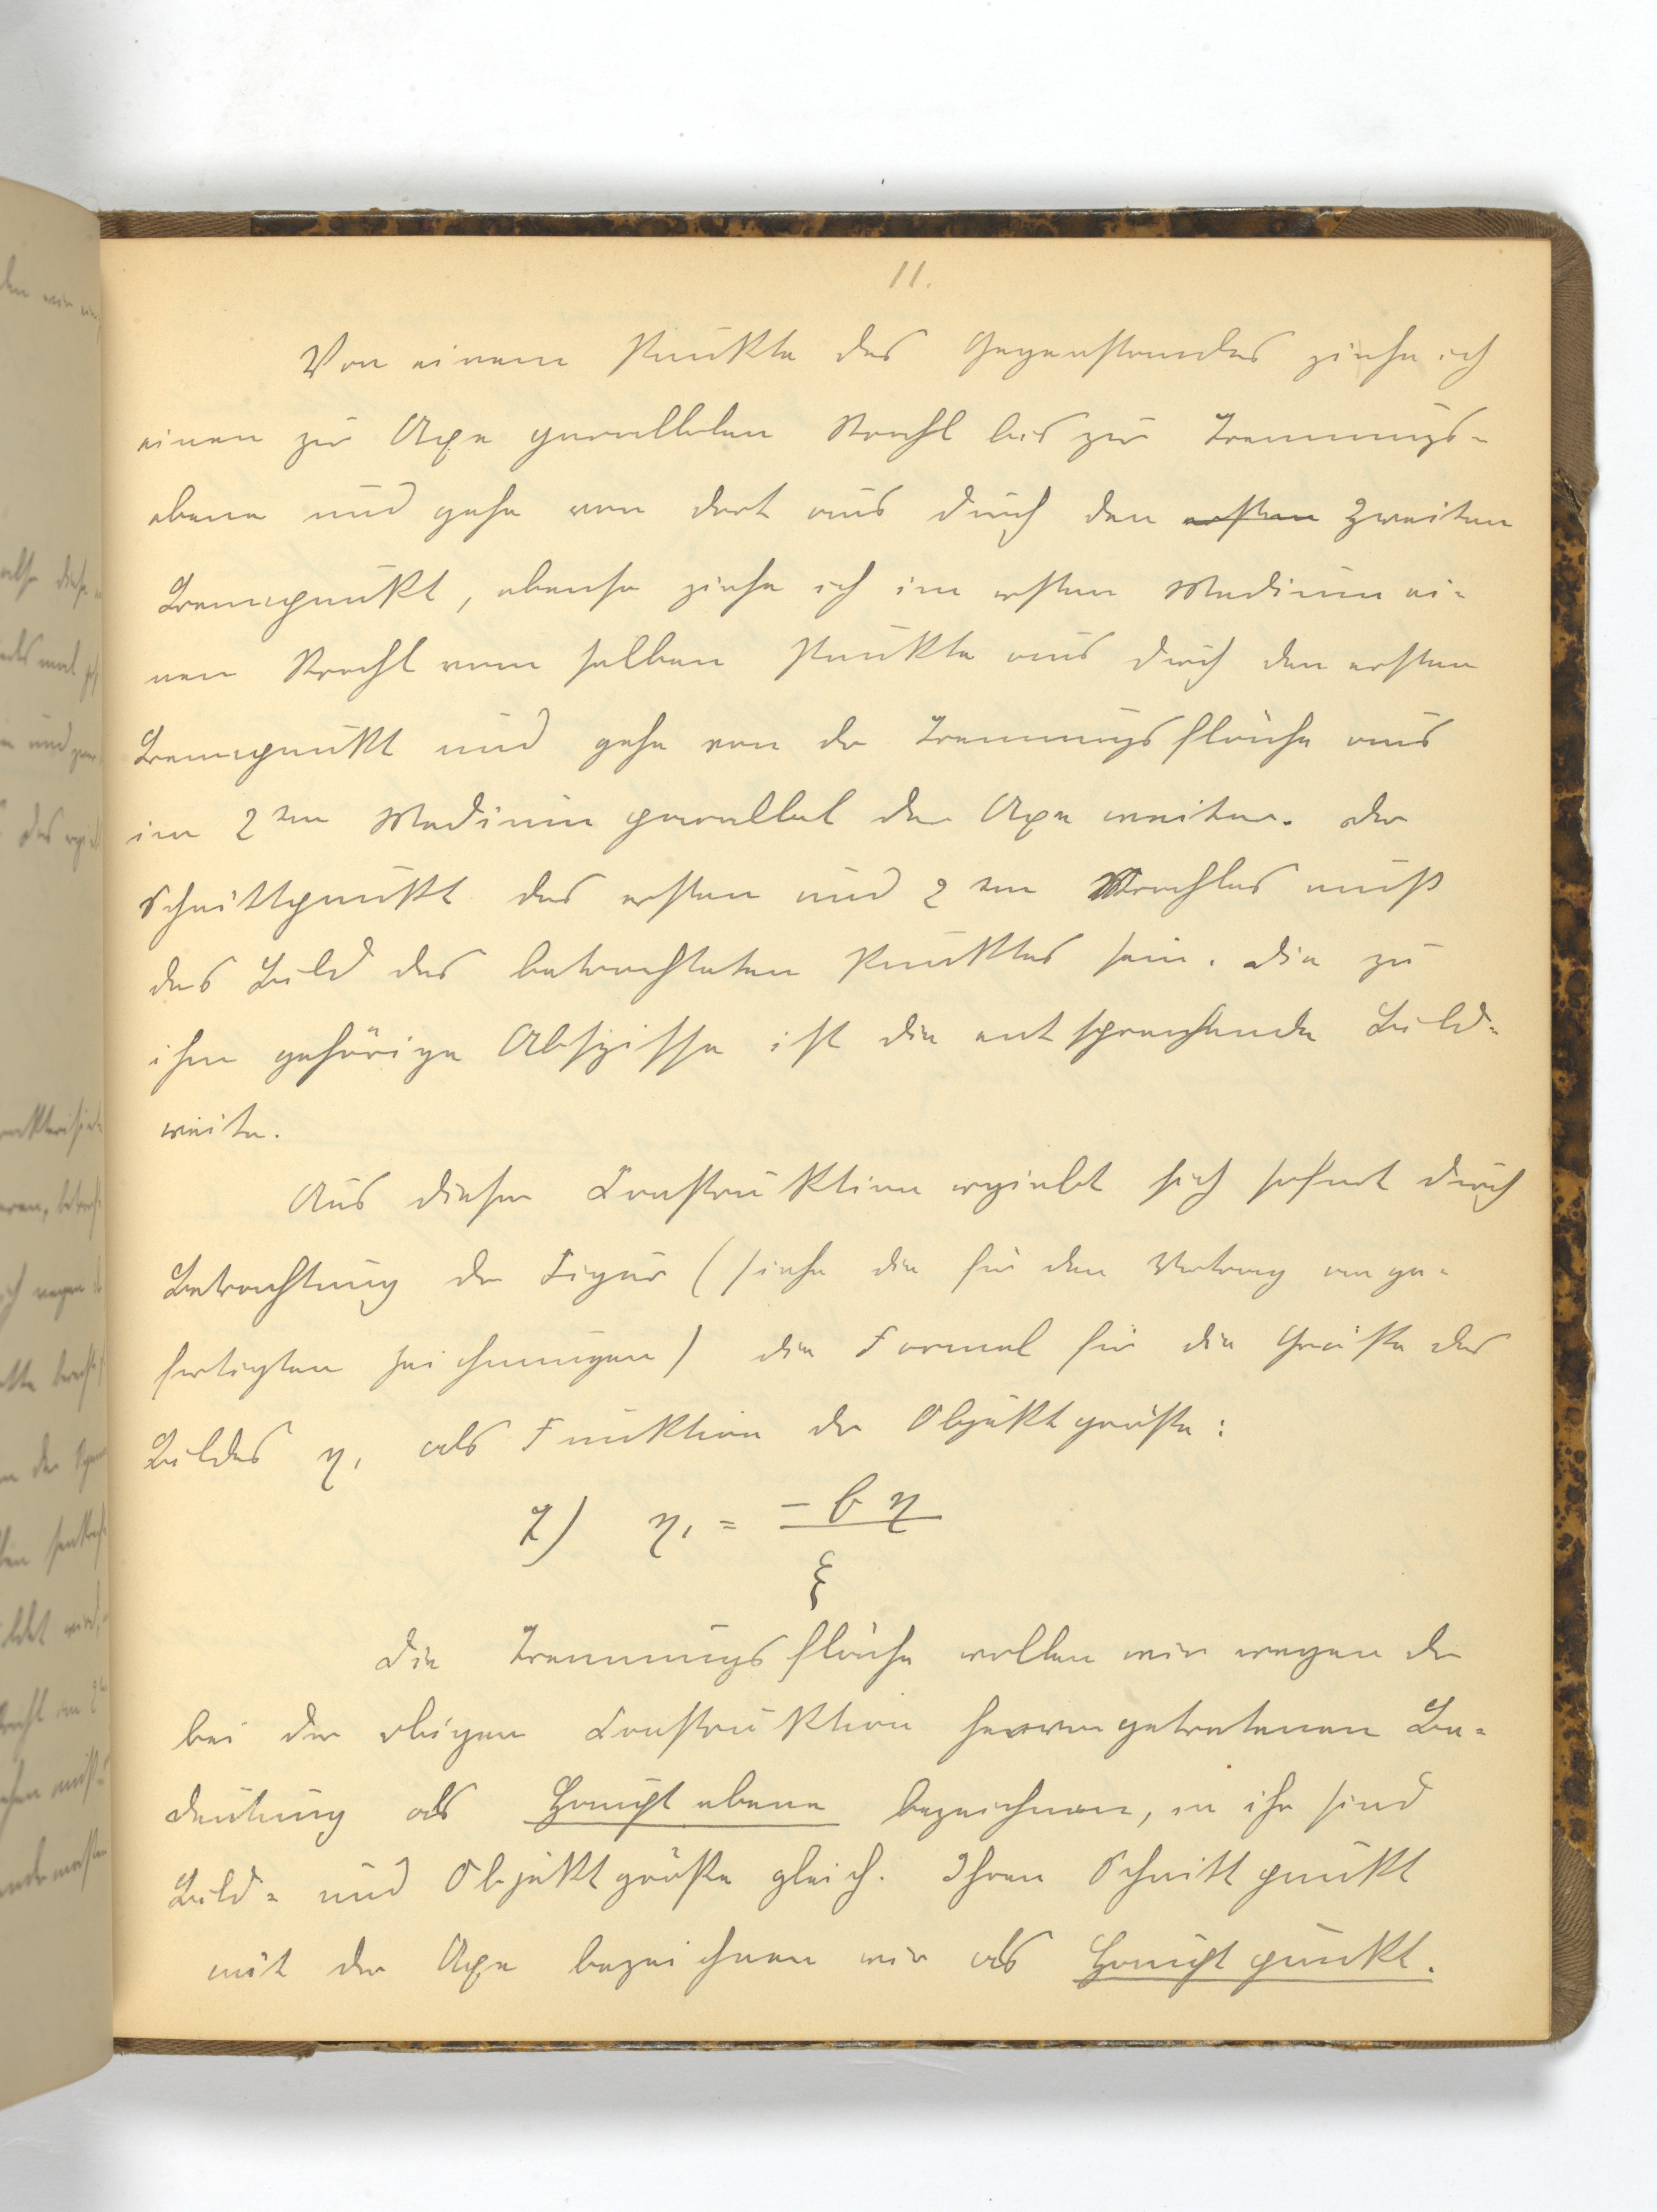 11.
Von einem Punkte des Gegenstandes ziehe ich
einen zur Axe parallelen Strahl bis zur Trennungs-
ebene und gehe von dort aus durch den ersten zweiten
Brennpunkt, ebenso ziehe ich im ersten Medium ei-
nen Strahl vom selben Punkte aus durch den ersten
Brennpunkt und gehe von der Trennungsfläche aus
im 2ten Medium parallel der Axe weiter. Der
Schnittpunkt des ersten und 2ten Strahles muß
das Bild des betrachteten Punktes sein. Die zu
ihm gehörige Abszisse ist die entsprechende Bild-
weite.
Aus dieser Construktion ergiebt sich sofort durch
Betrachtung der Figur (siehe die für den Vortrag ange-
fertigten Zeichnungen) die Formel für die Größe des
Bildes η₁ als Funktion der Objektgröße:
2) η₁ = -b η
ξ
Die Trennungsfläche wollen wir wegen der
bei der obigen Construktion hervorgetretenen Be-
deutung als Hauptebene bezeichnen, in ihr sind
Bild- und Objektgröße gleich. Ihren Schnittpunkt
mit der Axe bezeichnen wir als Hauptpunkt.